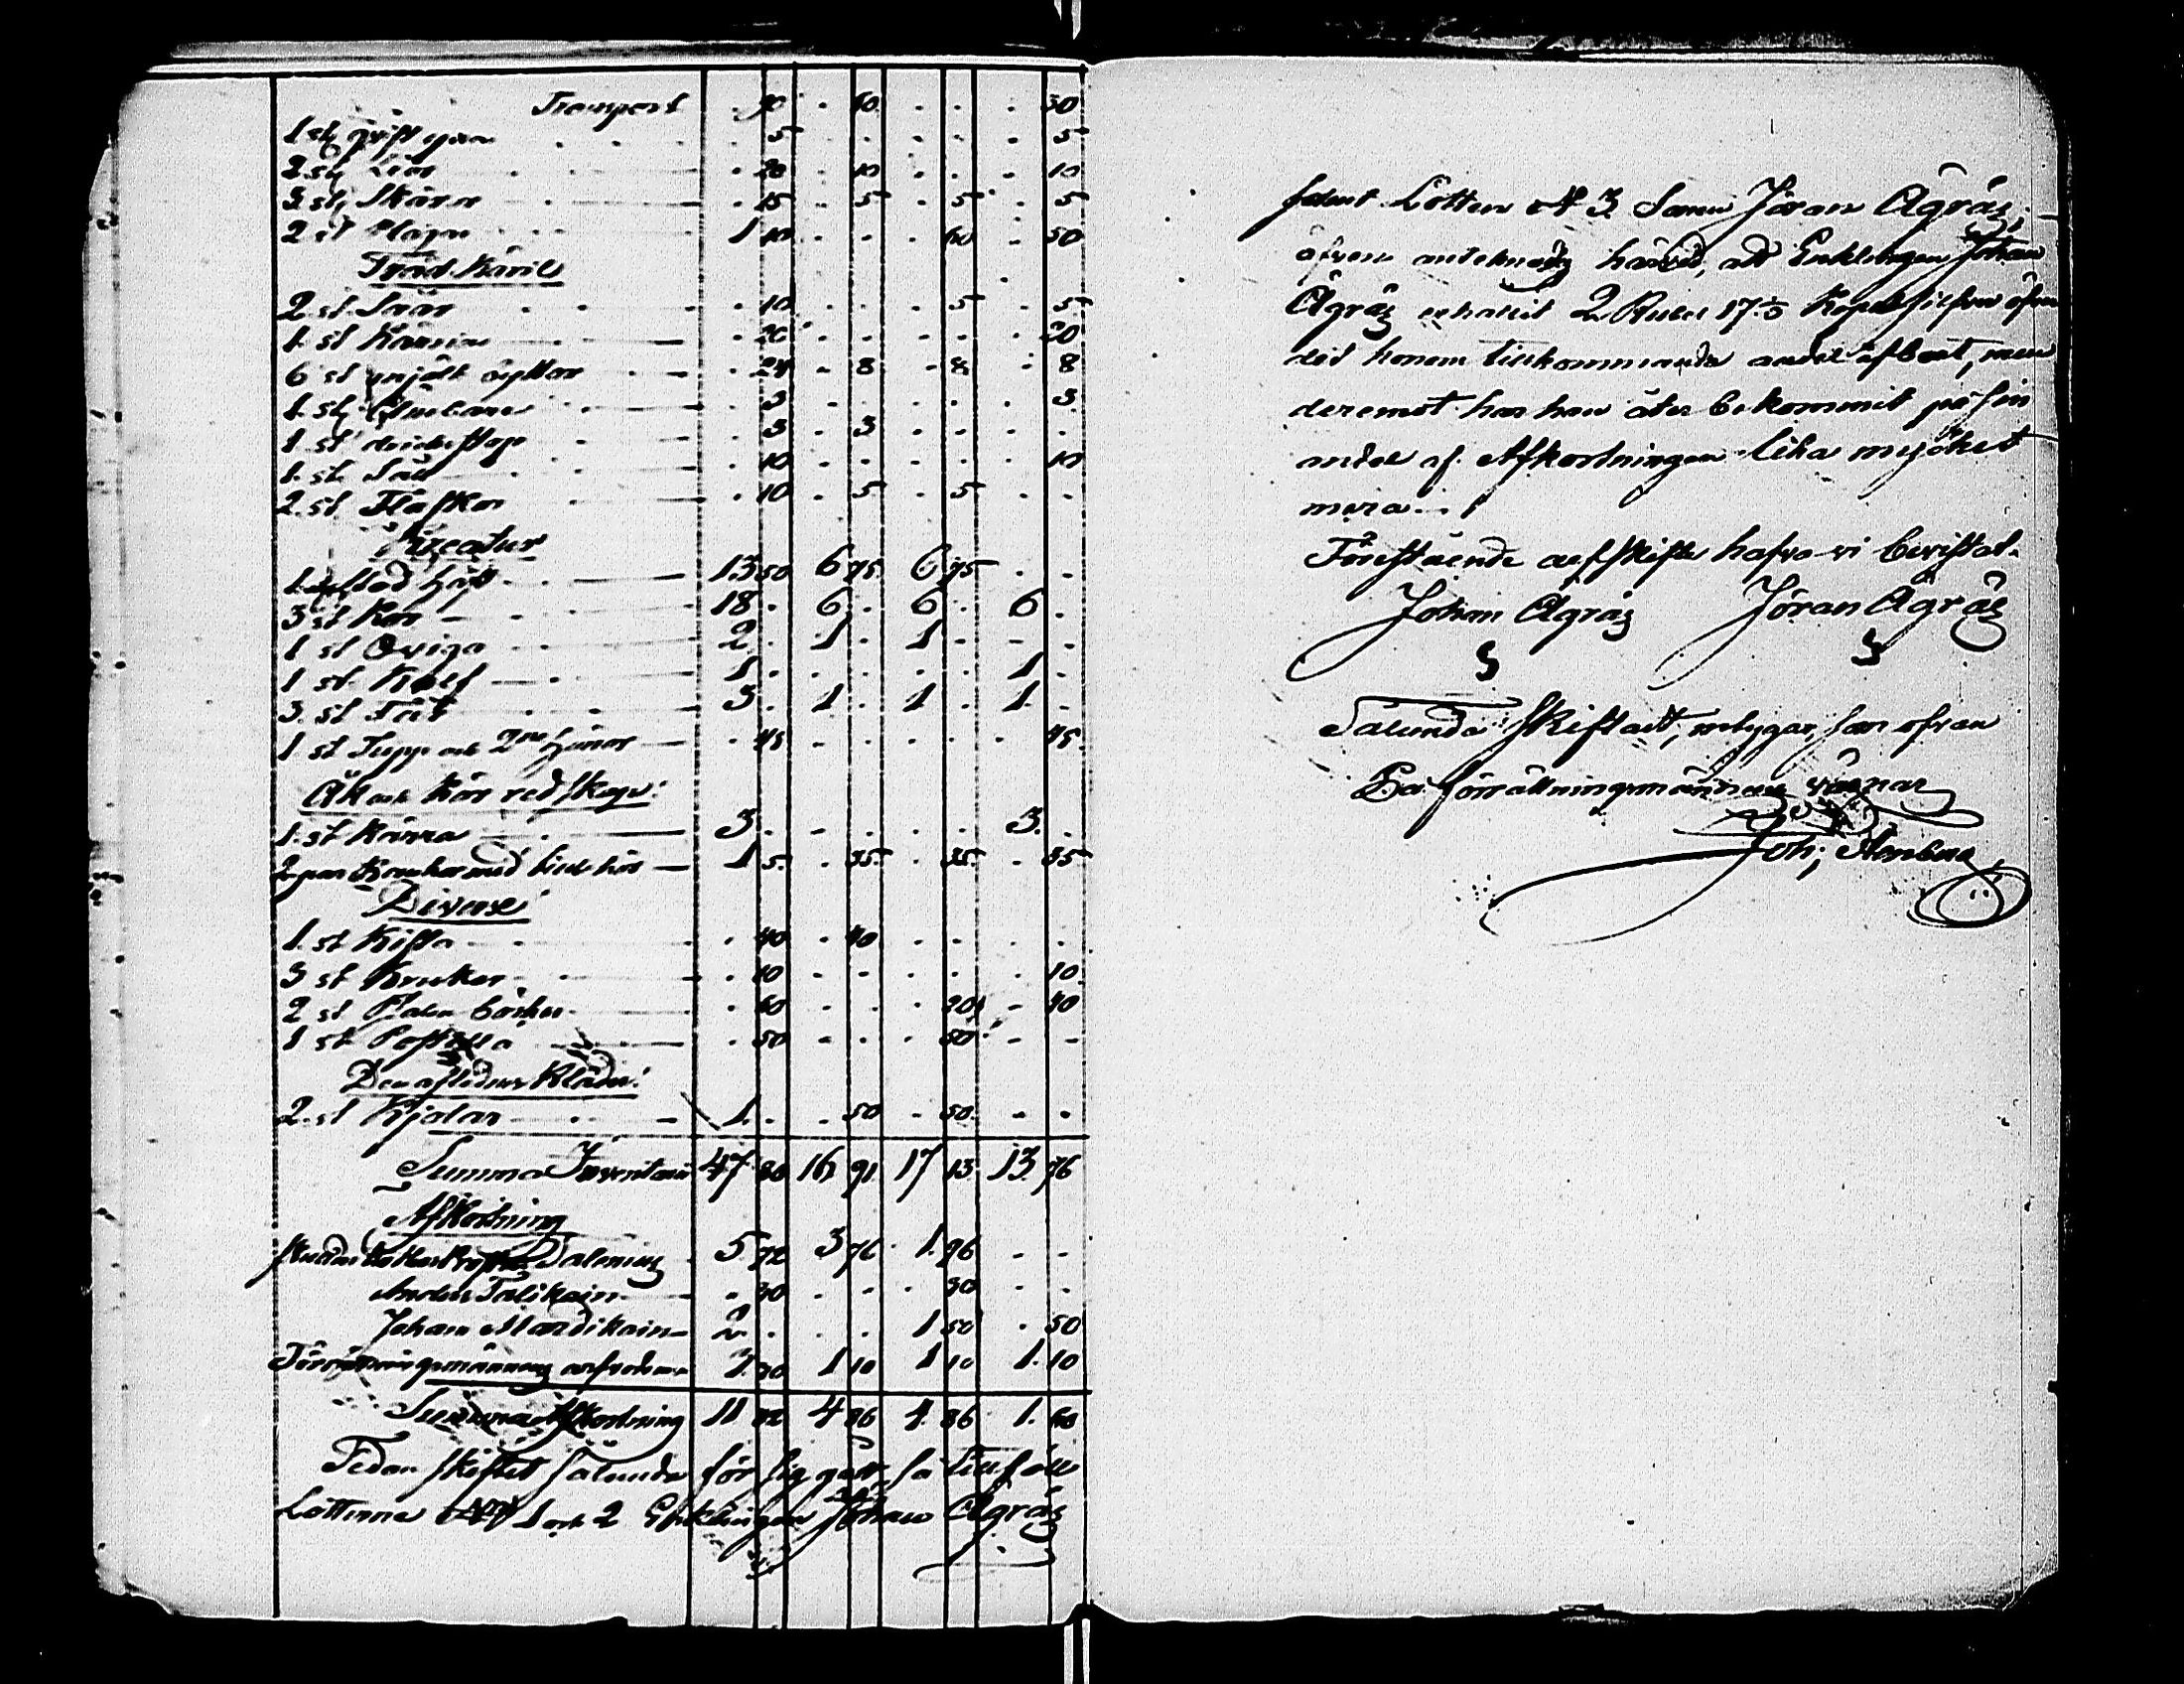 Transport . 90 . 40 . . . 30
1 st . 5 . . . . . 5
2 st Liar . 20 . 10 . . . 10
3 st Skäror . 15 . 5 . 5 . 5
2 st Plogar 1 10 . . . 60 . 50
Träd Käril
2 st Såar . 10 . . . 5 . 5
1 st Kärna . 20 . . . . . 20
6 st mjölk byttor . 24 . 8 . 8 . 8
1 st . 3 . . . . . 3
1 st . 3 . 3 . . . .
1 st Såll . 10 . . . . . 10
2 st Flaskor . 10 . 5 . 5 . .
Kreatur
1 st Häst 13 50 6 75 6 75 . .
3 st Kor 18 . 6 . 6 . 6 .
1 st Qviga 2 . 1 . 1 . . .
1 st Kalf 1 . . . . . 1 .
3 st Får 3 . 1 . 1 . 1 .
1 st Tupp och 2ne Hönor . 45 . . . . . 45
Åk och Kör redskap:
1 st Kärra 3 . . . . . 3 .
2 par med tillbehör 1 5 . 35 . 35 . 35
Diverse
1 st Kista . 40 . 40 . . . .
3 st Krukor . 10 . . . . . 10
2 st Psalm böcker . 60 . . . 20 . 40
1 st Postilla . 50 . . . 50 . .
Den aflednes Kläder:
2 st Kjolar 1 . . 50 . 50 . .
Summa Inventarii 47 80 16 91 17 13 13 76
Afkortning
5 72 3 76 1 96 . .
Anders Talikain . 30 . . . 30 . .
Johan Mardikain 2 . . . 1 50 . 50
Förrättningsmännens arfvode 3 30 1 10 1 10 1 10
Summa Afkortning 11 32 4 86 4 86 1 60
Sedan skiftet sålunda för sig gått, så tillföll
Lotterne No 1 och 2 Enklingen Johan Ågräs

samt Lotten No 3 Sonen Jöran Ågräs;
äfven antecknas härvid, att Enklingen Johan
Ågräs erhållit 2 Rubel 17 Kopek silfver öfver
det honom tillkommande andel af boet, men
deremot har han åter bekommit på sin
andel af Afkortningen lika mycket
mera.
Förestående arfskifte hafva vi bevistat.
Johan Ågräs Jöran Ågräs
Sålunda skiftadt, betygar, som ofvan
På förrättningsmännens vägnar
Joh; Stenberg